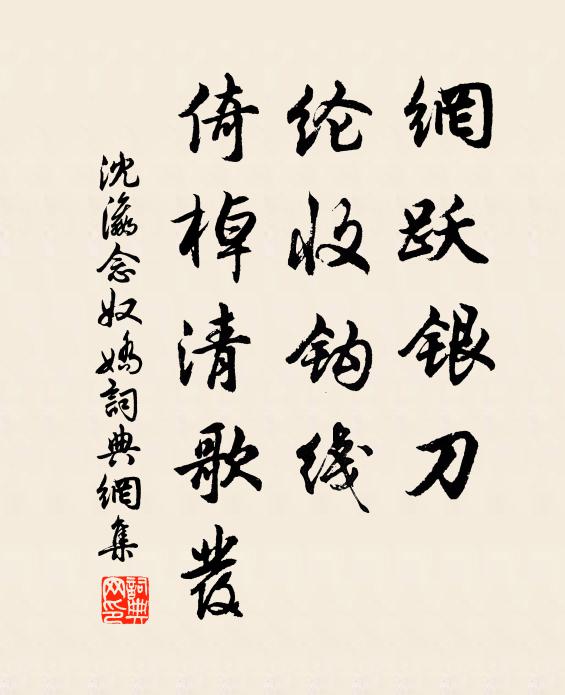 網跃银刀
纶收钩线
倚棹清歌發
沈瀛念奴嬌詞典網集
詞典网印